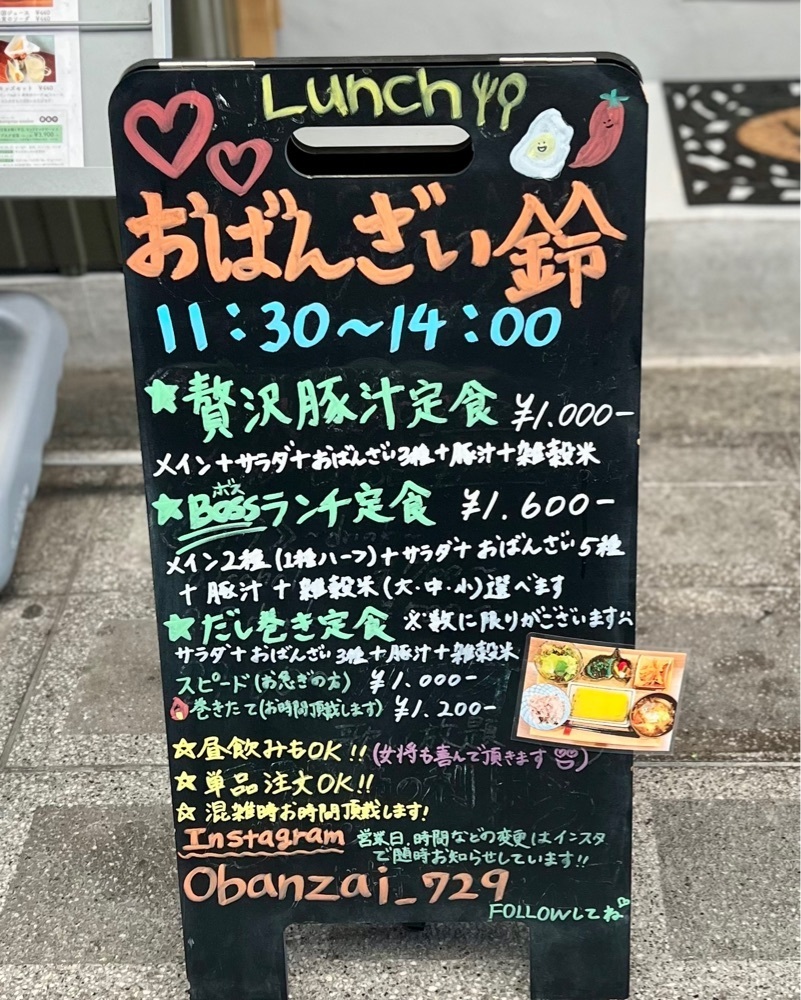 Lunch
おばんざい鈴
11:30～14:00
★贅沢豚汁定食 ¥1.000-
メイン+サラダ+おばんざい3種+豚汁+雑穀米
ボス
★Bossランチ定食 ¥1.600-
メイン2種(1種ハーフ)+サラダ+おばんざい5種
+豚汁+雑穀米(大・中・小)選べます
★だし巻き定食 ※数に限りがございます
サラダ+おばんざい3種+豚汁+雑穀米
スピード(お急ぎの方) ¥1.000-
巻きたて(お時間頂戴します) ¥1.200-
☆昼飲みもOK!!(女将も喜んで頂きます)
☆単品注文OK!!
☆混雑時お時間頂戴します!
Instagram 営業日.時間などの変更はインスタ
で随時お知らせしています!!
Obanzai_729
FOLLOWしてね